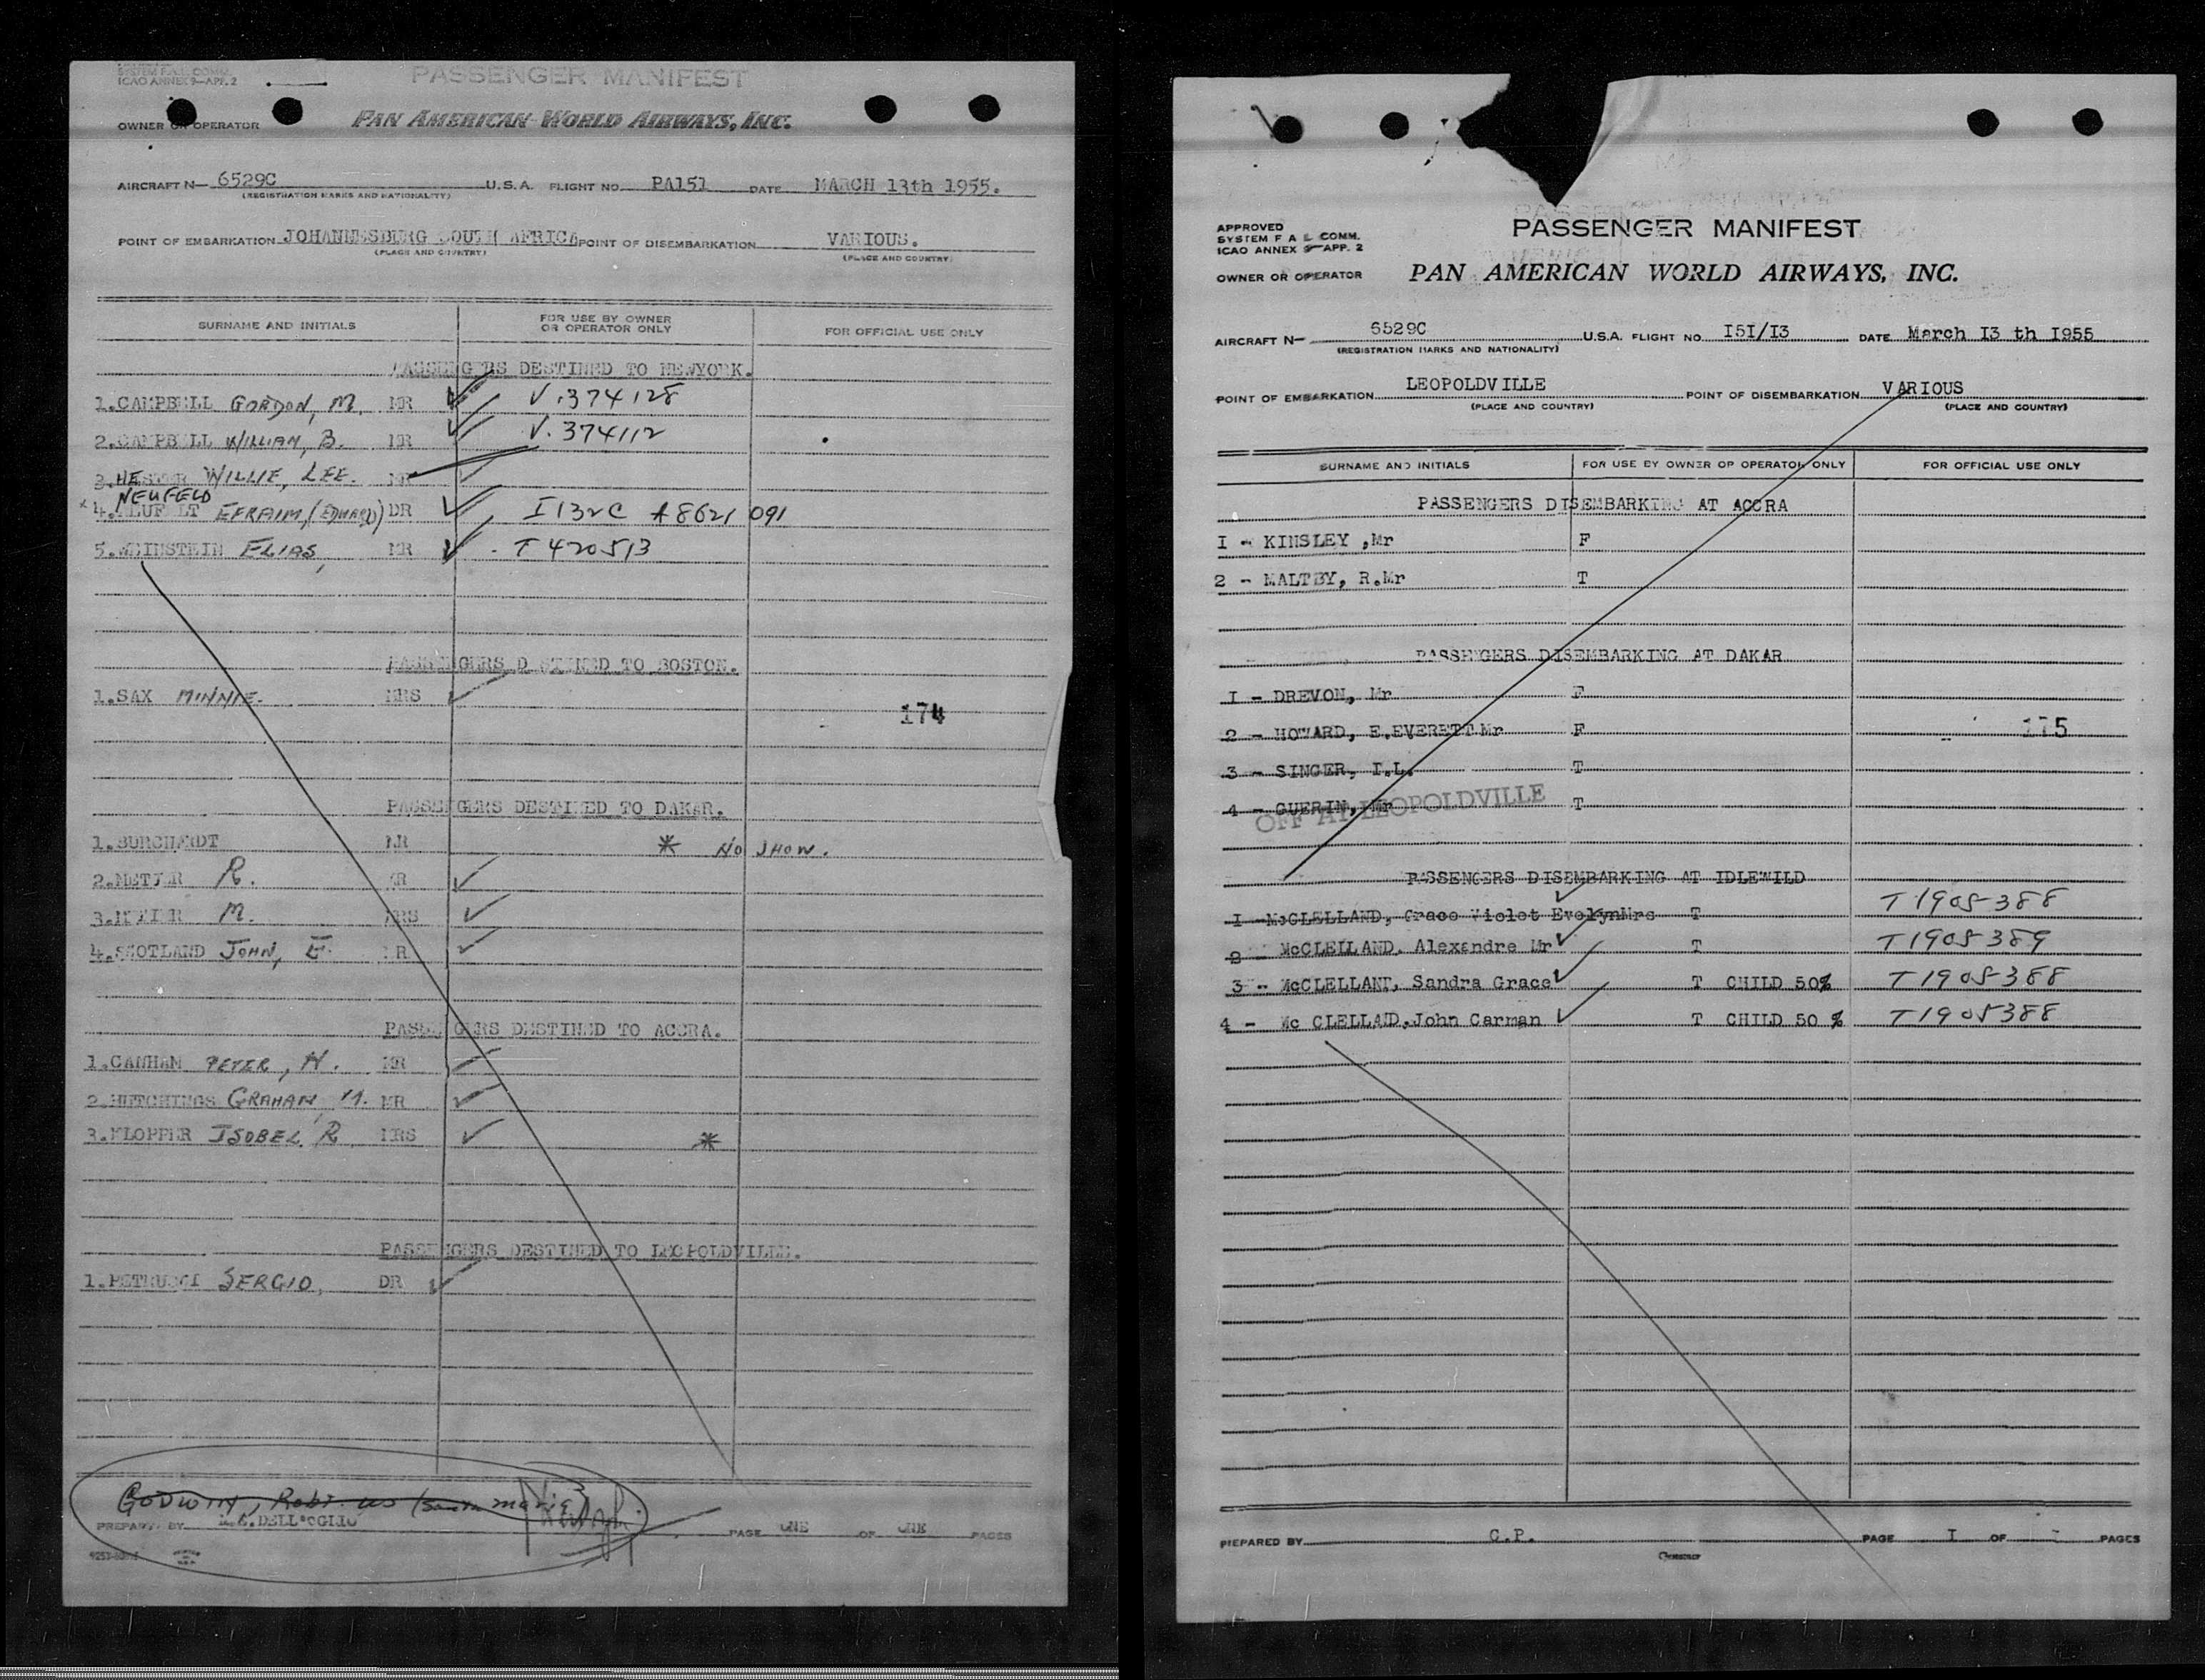 SYSTEM F.A.L. COMM.
ICAO ANNEX 9—APP. 2
PASSENGER MANIFEST
OWNER OR OPERATOR PAN AMERICAN WORLD AIRWAYS, INC.
AIRCRAFT N— 6529C U.S.A. FLIGHT NO. PA151 DATE MARCH 13th 1955.
(REGISTRATION MARKS AND NATIONALITY)
POINT OF EMBARKATION JOHANNESBURG SOUTH AFRICA POINT OF DISEMBARKATION VARIOUS.
(PLACE AND COUNTRY) (PLACE AND COUNTRY)
SURNAME AND INITIALS FOR USE BY OWNER OR OPERATOR ONLY FOR OFFICIAL USE ONLY
PASSENGERS DESTINED TO NEWYORK.
1.CAMPBELL GORDON, M. MR V.374128
2.CAMPBELL WILLIAM, B. MR V.374112
3.HESTER WILLIE, LEE. MR
NEUFELD
4. EFRAIM, (EDWARD) DR I132C A8621091
5.WEINSTEIN ELIAS, MR T420513
PASSENGERS DESTINED TO BOSTON.
1.SAX MINNIE. MRS
174
PASSENGERS DESTINED TO DAKAR.
1.BURCHARDT MR * NO SHOW.
2.METJER R. MR
3. M. MRS
4.SCOTLAND JOHN, E. MR
PASSENGERS DESTINED TO ACCRA.
1.CANHAM PETER, H. MR
2.HUTCHINGS GRAHAM, MR
3.KLOPPER ISOBEL R MRS *
PASSENGERS DESTINED TO LEOPOLDVILLE.
1.PETRUCCI SERGIO, DR
GODWIN, Robt.
PREPARED BY DELL'OGLIO PAGE ONE OF ONE PAGES
APPROVED
SYSTEM F A L COMM.
ICAO ANNEX 9—APP. 2
PASSENGER MANIFEST
OWNER OR OPERATOR PAN AMERICAN WORLD AIRWAYS, INC.
AIRCRAFT N— 6529C U.S.A. FLIGHT NO. I5I/I3 DATE March I3 th I955
(REGISTRATION MARKS AND NATIONALITY)
POINT OF EMBARKATION LEOPOLDVILLE POINT OF DISEMBARKATION VARIOUS
(PLACE AND COUNTRY) (PLACE AND COUNTRY)
SURNAME AND INITIALS FOR USE BY OWNER OR OPERATOR ONLY FOR OFFICIAL USE ONLY
PASSENGERS DISEMBARKING AT ACCRA
I - KINSLEY ,Mr F
2 - MALTBY, R.Mr T
PASSENGERS DISEMBARKING AT DAKAR
I - DREVON, Mr F
2 - HOWARD, E.EVERETT Mr F 175
3 - SINGER, I.L. T
4 - GUERIN, Mr T
OFF AT LEOPOLDVILLE
PASSENGERS DISEMBARKING AT IDLEWILD
I -McCLELLAND, Grace Violet EvelynMrs T T1905388
2 - McCLELLAND, Alexandre Mr T T1905389
3 - McCLELLAND, Sandra Grace T CHILD 50% T1905388
4 - Mc CLELLAND,John Carman T CHILD 50 % T1905388
PREPARED BY C.P. PAGE I OF PAGES